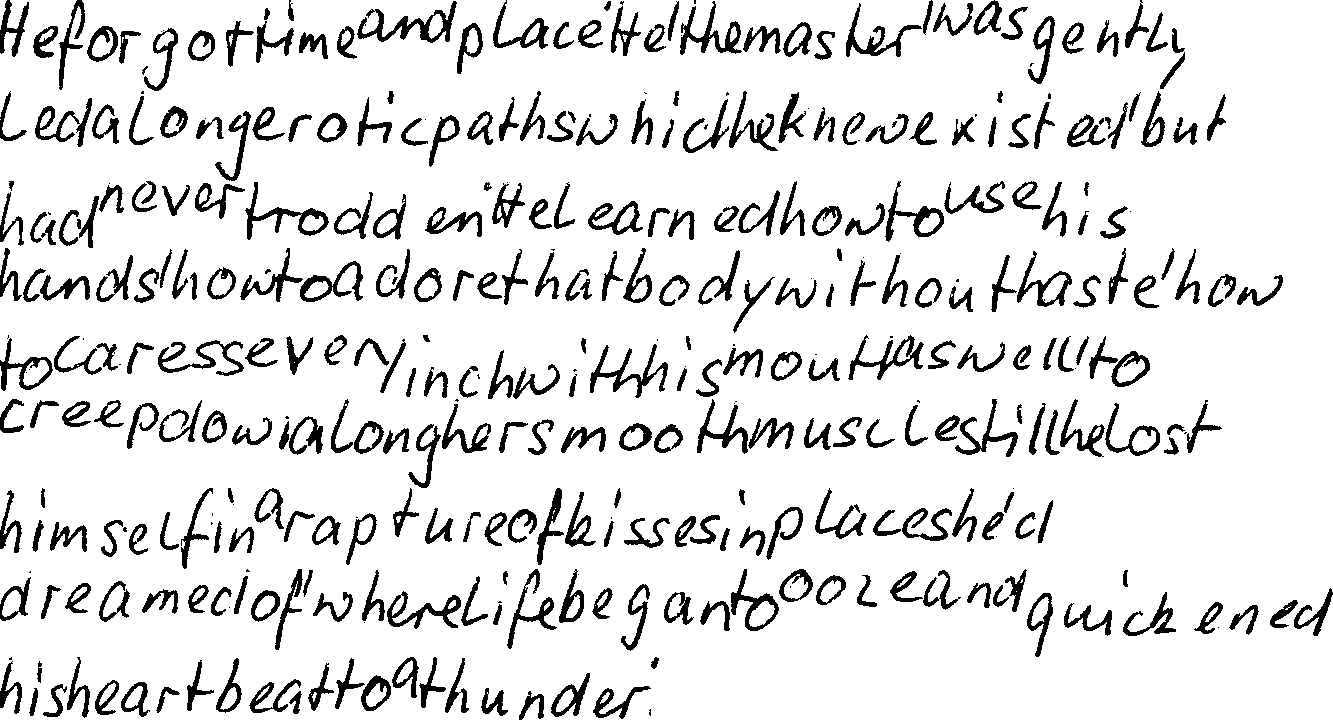 He forgot time and place. He, the master, was gently
led along erotic paths which he knew existed, but
had never trodden. He learned how to use his
hands, how to adore that body without haste, how
to caress every inch with his mouth as well, to
creep down along her smooth muscles till he lost
himself in a rapture of kisses in places he'd
dreamed of, where life began to ooze and quickened
his heartbeat to a thunder.